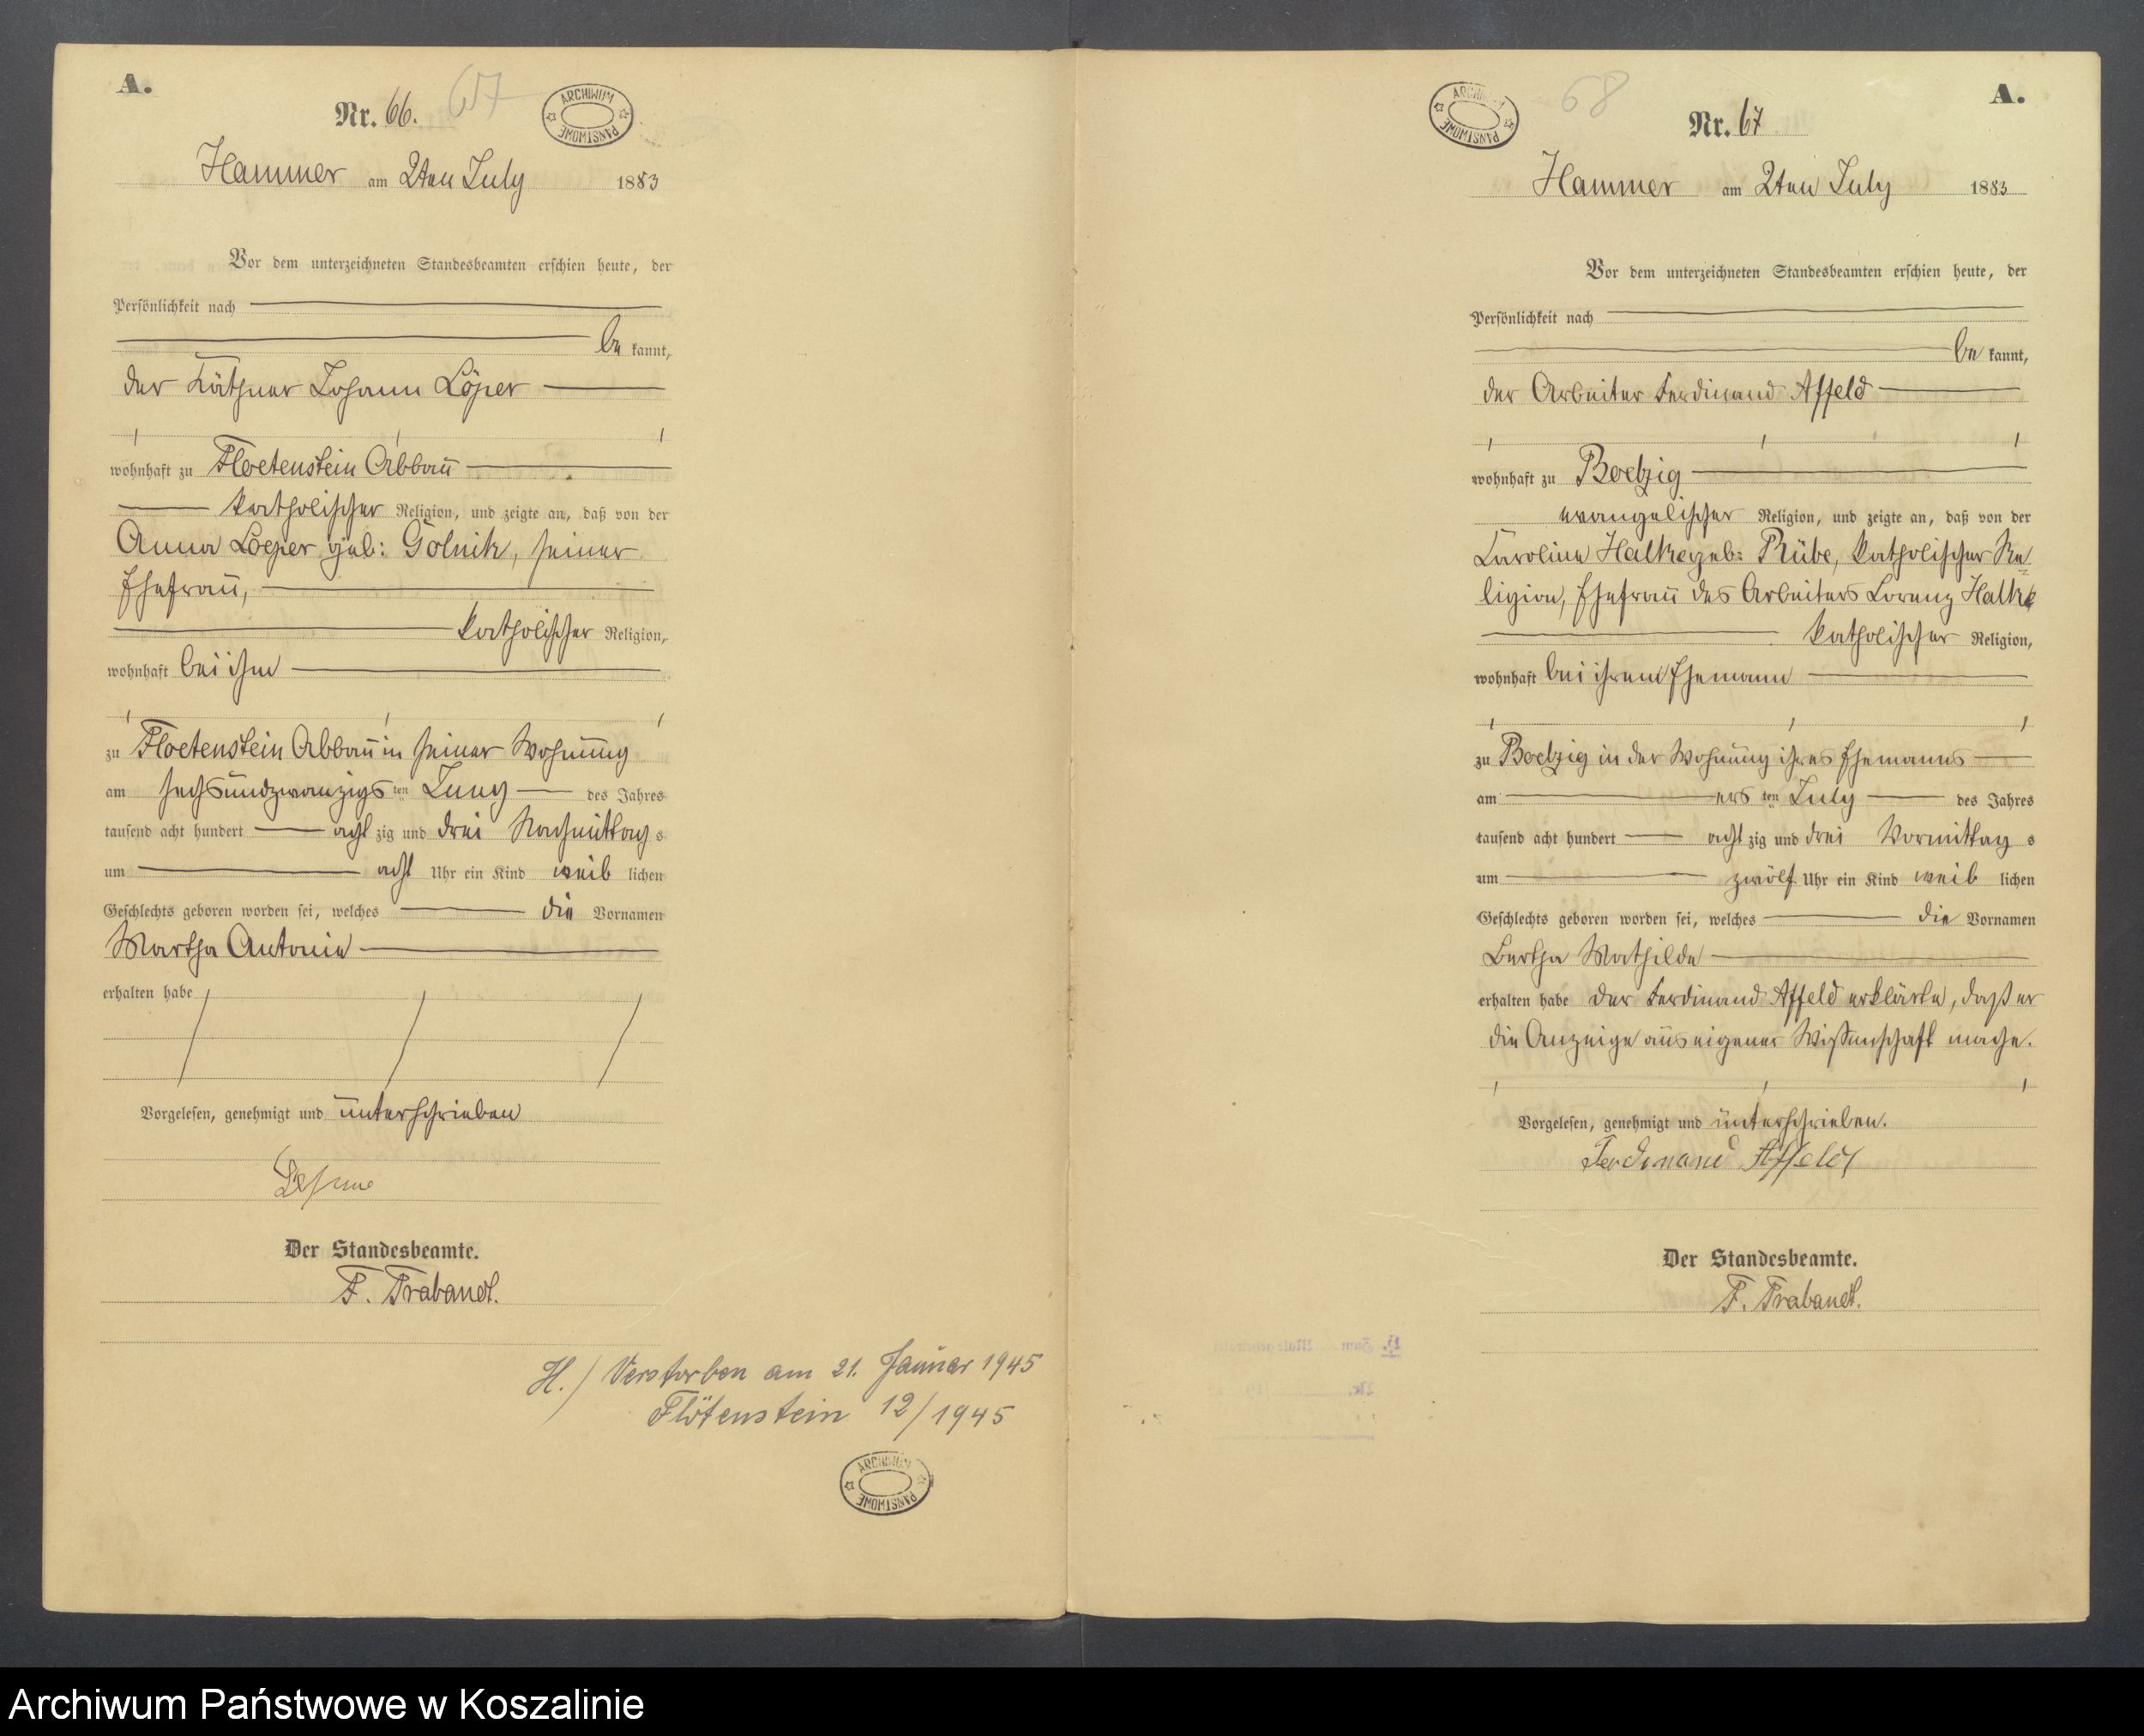 A.
Nr. 66.
67
ARCHIWUM PAŃSTWOWE
Hammer am 2ten July 1883
Vor dem unterzeichneten Standesbeamten erschien heute, der
Persönlichkeit nach
be kannt,
der Käthner Johann Löper
wohnhaft zu Floetenstein Abbau
katholischer Religion, und zeigte an, daß von der
Anna Loeper geb: Golnik, seiner
Ehefrau,
katholischer Religion,
wohnhaft bei ihm
zu Floetenstein Abbau in seiner Wohnung
am sechsundzwanzigs ten Juny des Jahres
tausend acht hundert acht zig und drei Nachmittag s
um acht Uhr ein Kind weib lichen
Geschlechts geboren worden sei, welches die Vornamen
Martha Antonie
erhalten habe
Vorgelesen, genehmigt und unterschrieben
Der Standesbeamte.
F. Trabandt.
H./ Verstorben am 21. Januar 1945
Flötenstein 12/1945
ARCHIWUM PAŃSTWOWE
A.
Nr. 67
68
ARCHIWUM PAŃSTWOWE
Hammer am 2ten July 1883
Vor dem unterzeichneten Standesbeamten erschien heute, der
Persönlichkeit nach
be kannt,
der Arbeiter Ferdinand Affeld
wohnhaft zu Boelzig
evangelischer Religion, und zeigte an, daß von der
Caroline Halke geb: Rübe, katholischer Re
ligion, Ehefrau des Arbeiters Lorenz Halke
katholischer Religion,
wohnhaft bei ihrem Ehemann
zu Boelzig in der Wohnung ihres Ehemanns
am ers ten July des Jahres
tausend acht hundert acht zig und drei Vormittag s
um zwölf Uhr ein Kind weib lichen
Geschlechts geboren worden sei, welches die Vornamen
Bertha Mathilde
erhalten habe Der Ferdinand Affeld erklärte, daß er
die Anzeige aus eigener Wißenschaft mache.
Vorgelesen, genehmigt und unterschrieben.
Ferdinand Affeldt
Der Standesbeamte.
F. Trabandt.
Archiwum Państwowe w Koszalinie